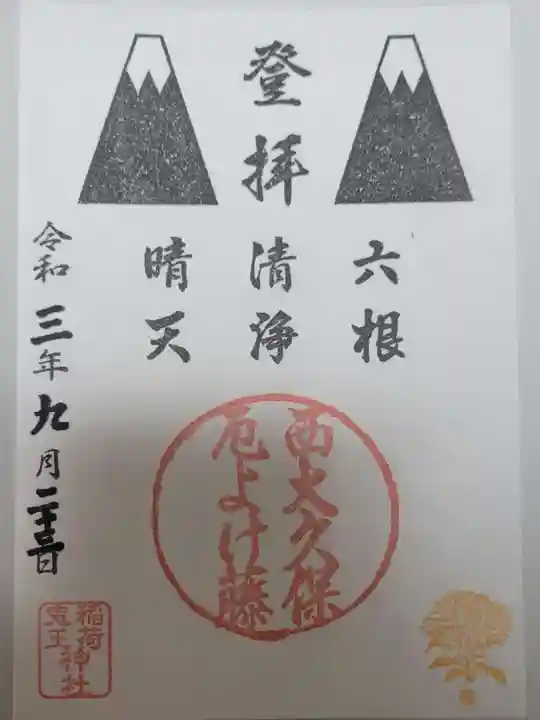 登拝
六根
清浄
晴天
令和三年九月二十三日
西大久保
厄よけ藤
稲荷
鬼王神社